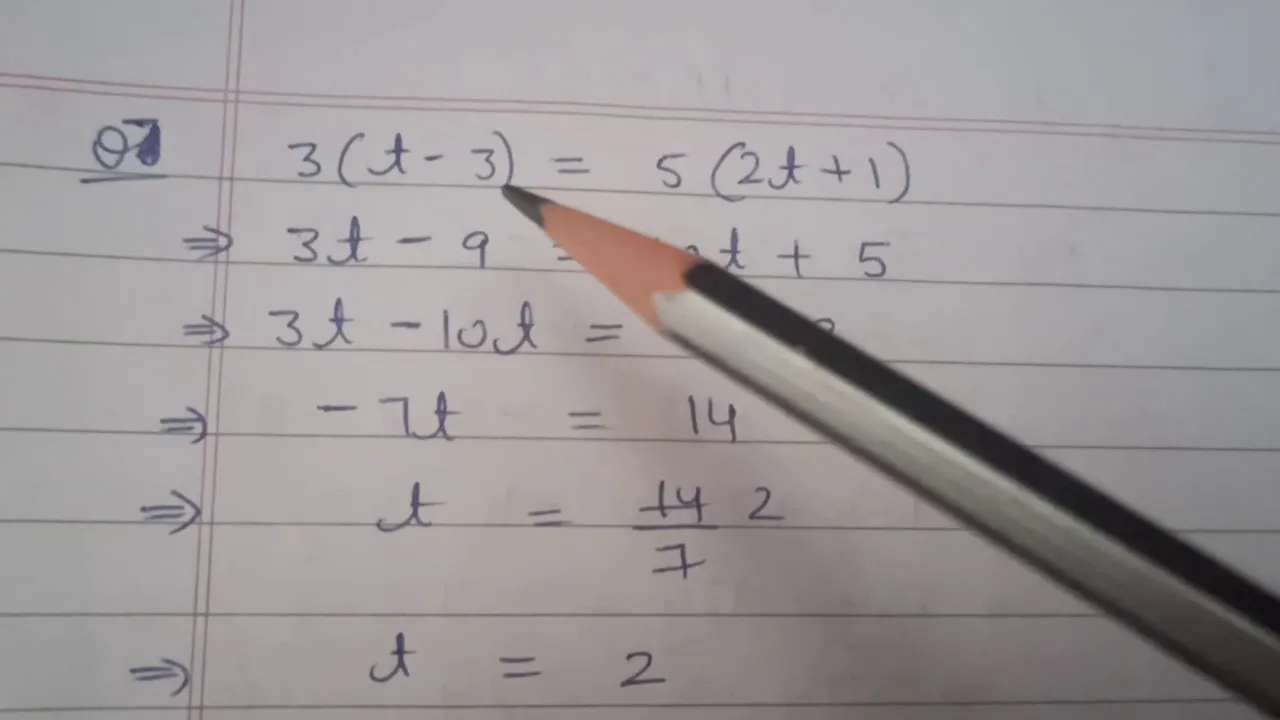 Q7 3(t - 3) = 5(2t + 1)
⇒ 3t - 9 = t + 5
⇒ 3t - 10t =
⇒ - 7t = 14
⇒ t = 14/7 2
⇒ t = 2